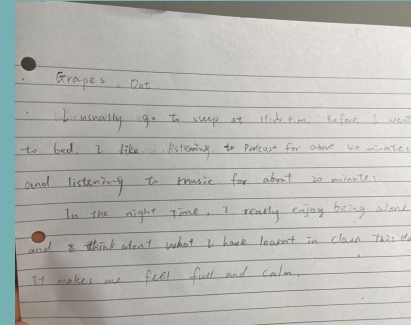 Grapes, Oat
I usually go to sleep at 11:40 p.m. Before I went
to bed, I like listening to Podcast for about 40 minutes
and listening to music for about 20 minutes.
In the night time, I really enjoy being alone
and think about what I have learnt in class this da
It makes me feel full and calm.